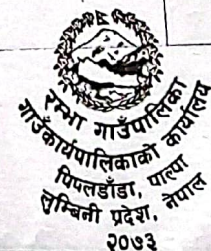 रम्भा गाउँपालिका
गाउँकार्यपालिकाको कार्यालय
पिपलडाँडा, पाल्पा
लुम्बिनी प्रदेश, नेपाल
२०७३